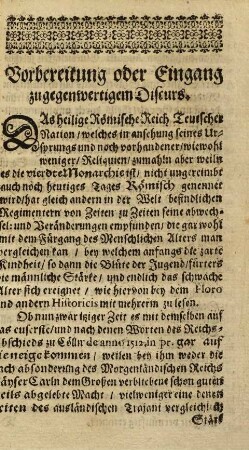 Vorbereitung oder Eingang
zu gegenwertigem Discurs.
DAs heilige Römische Reich Teutscher
Nation / welches in ansehung seines Ur-
sprungs und noch vorhandener / wiewohl
weniger / Reliquien / zumahln aber weiln
es die vierdte Monarchie ist / nicht ungereinbt
auch noch heutiges Tages Römisch genennet
wird / hat gleich andern in der Welt befindlichen
Regimentern von Zeiten zu Zeiten seine abwech-
sel: und Veränderungen empfunden / die gar wohl
mit dem Fürgang des Menschlichen Alters man
vergleichen kan / bey welchem anfangs die zarte
Kindheit / so dann die Blüte der Jugend / fürters
die männliche Stärke / und endlich das schwache
Alter sich ereignet / wie hiervon bey dem Floro
und andern Historicis mit mehrerm zu lesen.
Ob nun zwar iziger Zeit es mit demselben auf
das euserste / und nach denen Worten des Reichs-
abschieds zu Cölln de anno 1512, in pr. gar auf
die neige kommen / weilen bey ihm weder die
nach absonderung des Morgenländischen Reichs
Käyser Carln dem Großen verbliebene schon guten
theils abgelebte Macht / vielweniger eine denen
zeiten des ausländischen Trajani vergleichlich
Stär